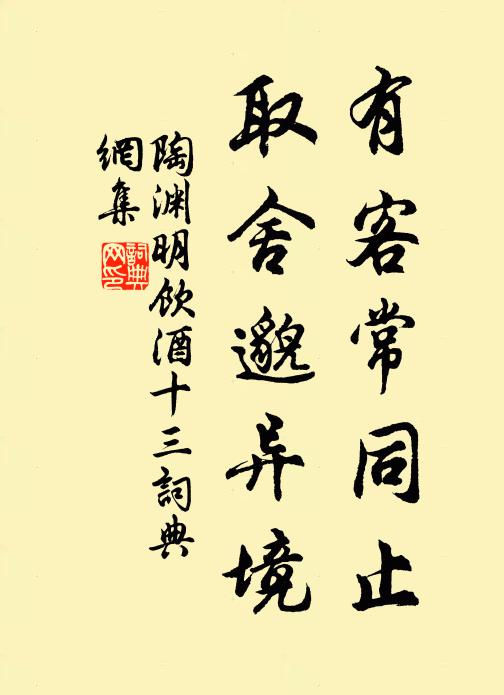 有客常同止
取舍邈异境
陶渊明饮酒十三詞典
網集
詞典网印